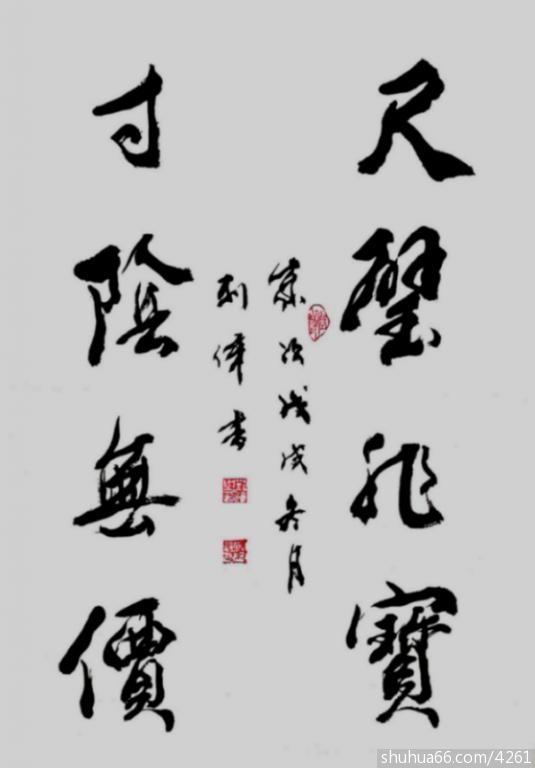 尺璧非寶
歲次戊戌冬月
刘偉書
寸陰無價
shuhua66.com/4261